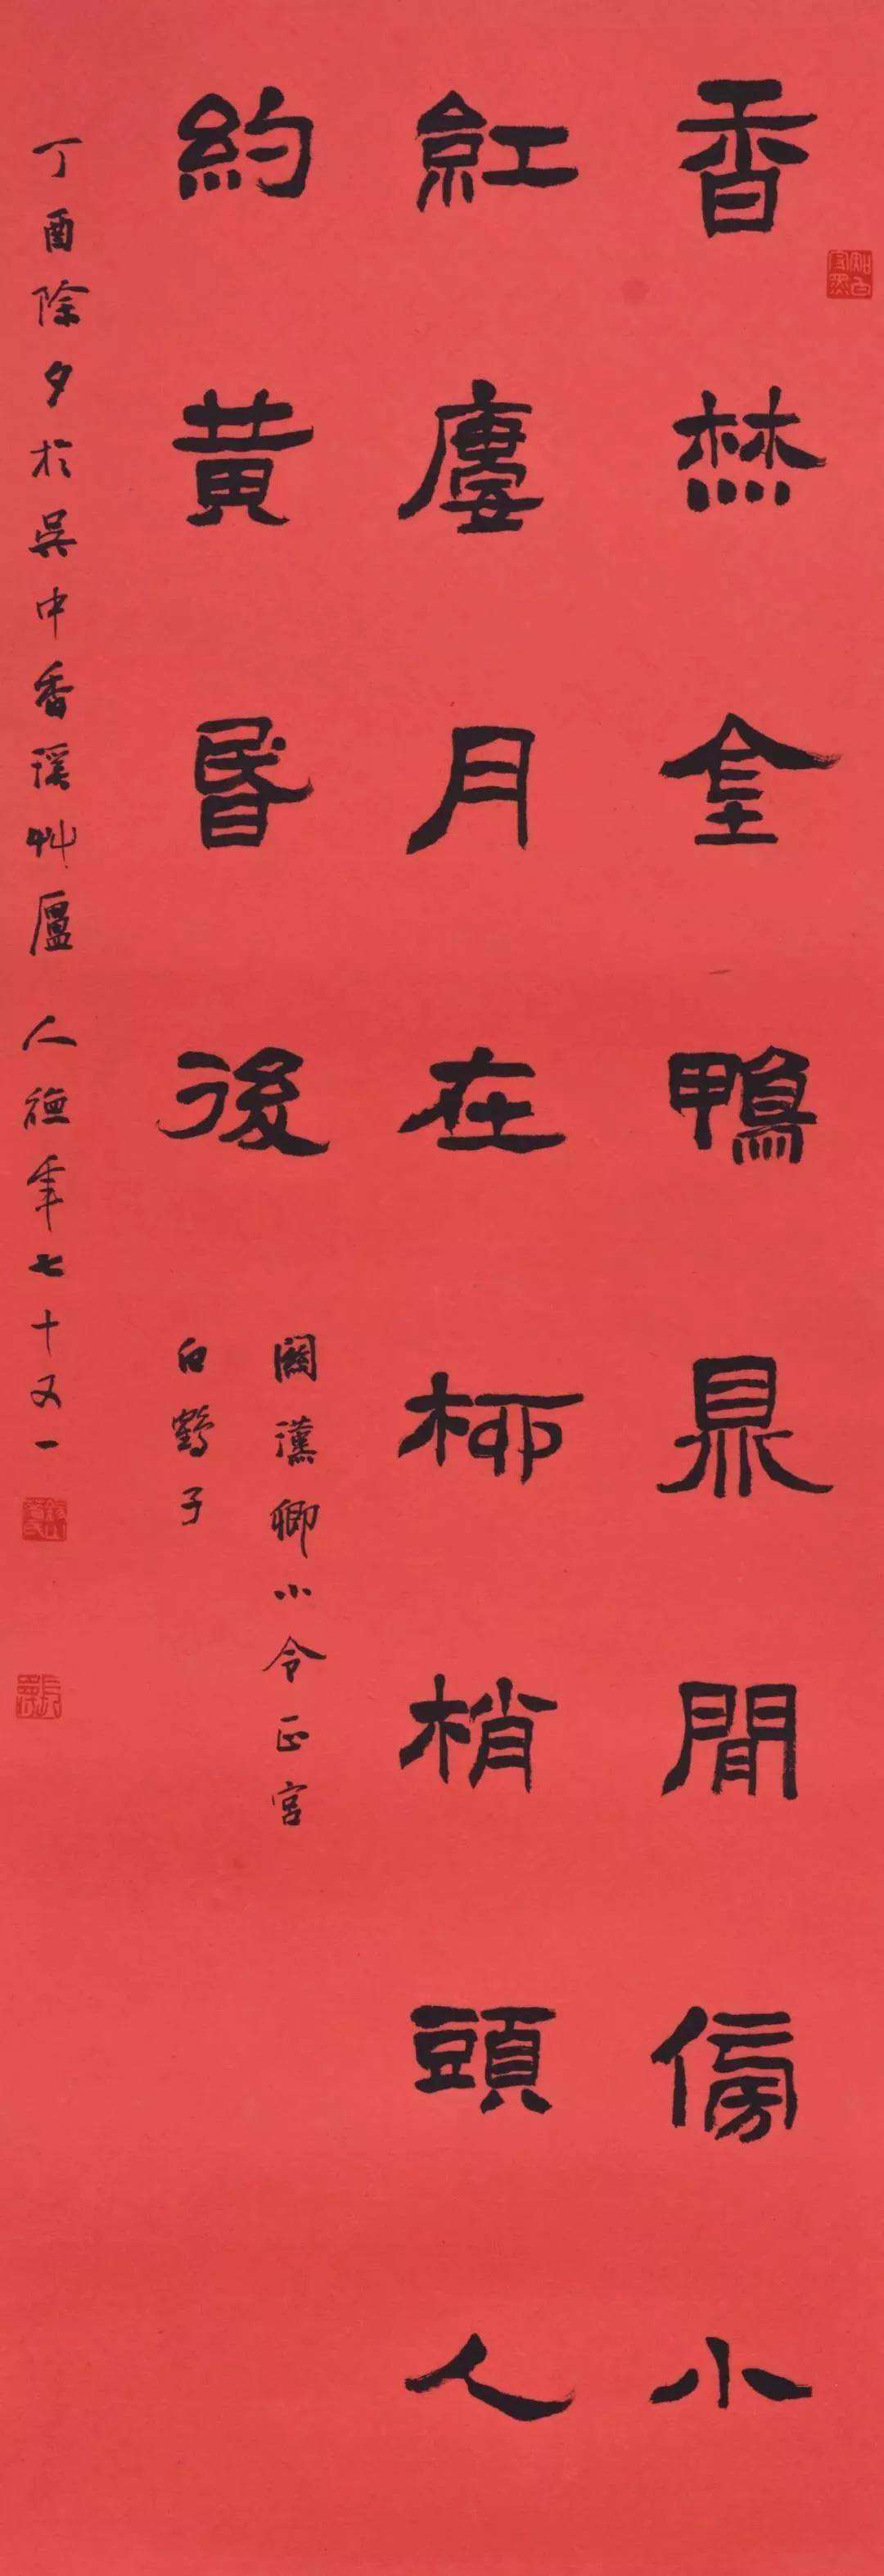 香焚金鴨鼎閒傍小
紅廔月在柳梢頭人
約黃昬後
關漢卿小令正宮
白鶴子
丁酉除夕於吳中香溪艸廬 人德年七十又一